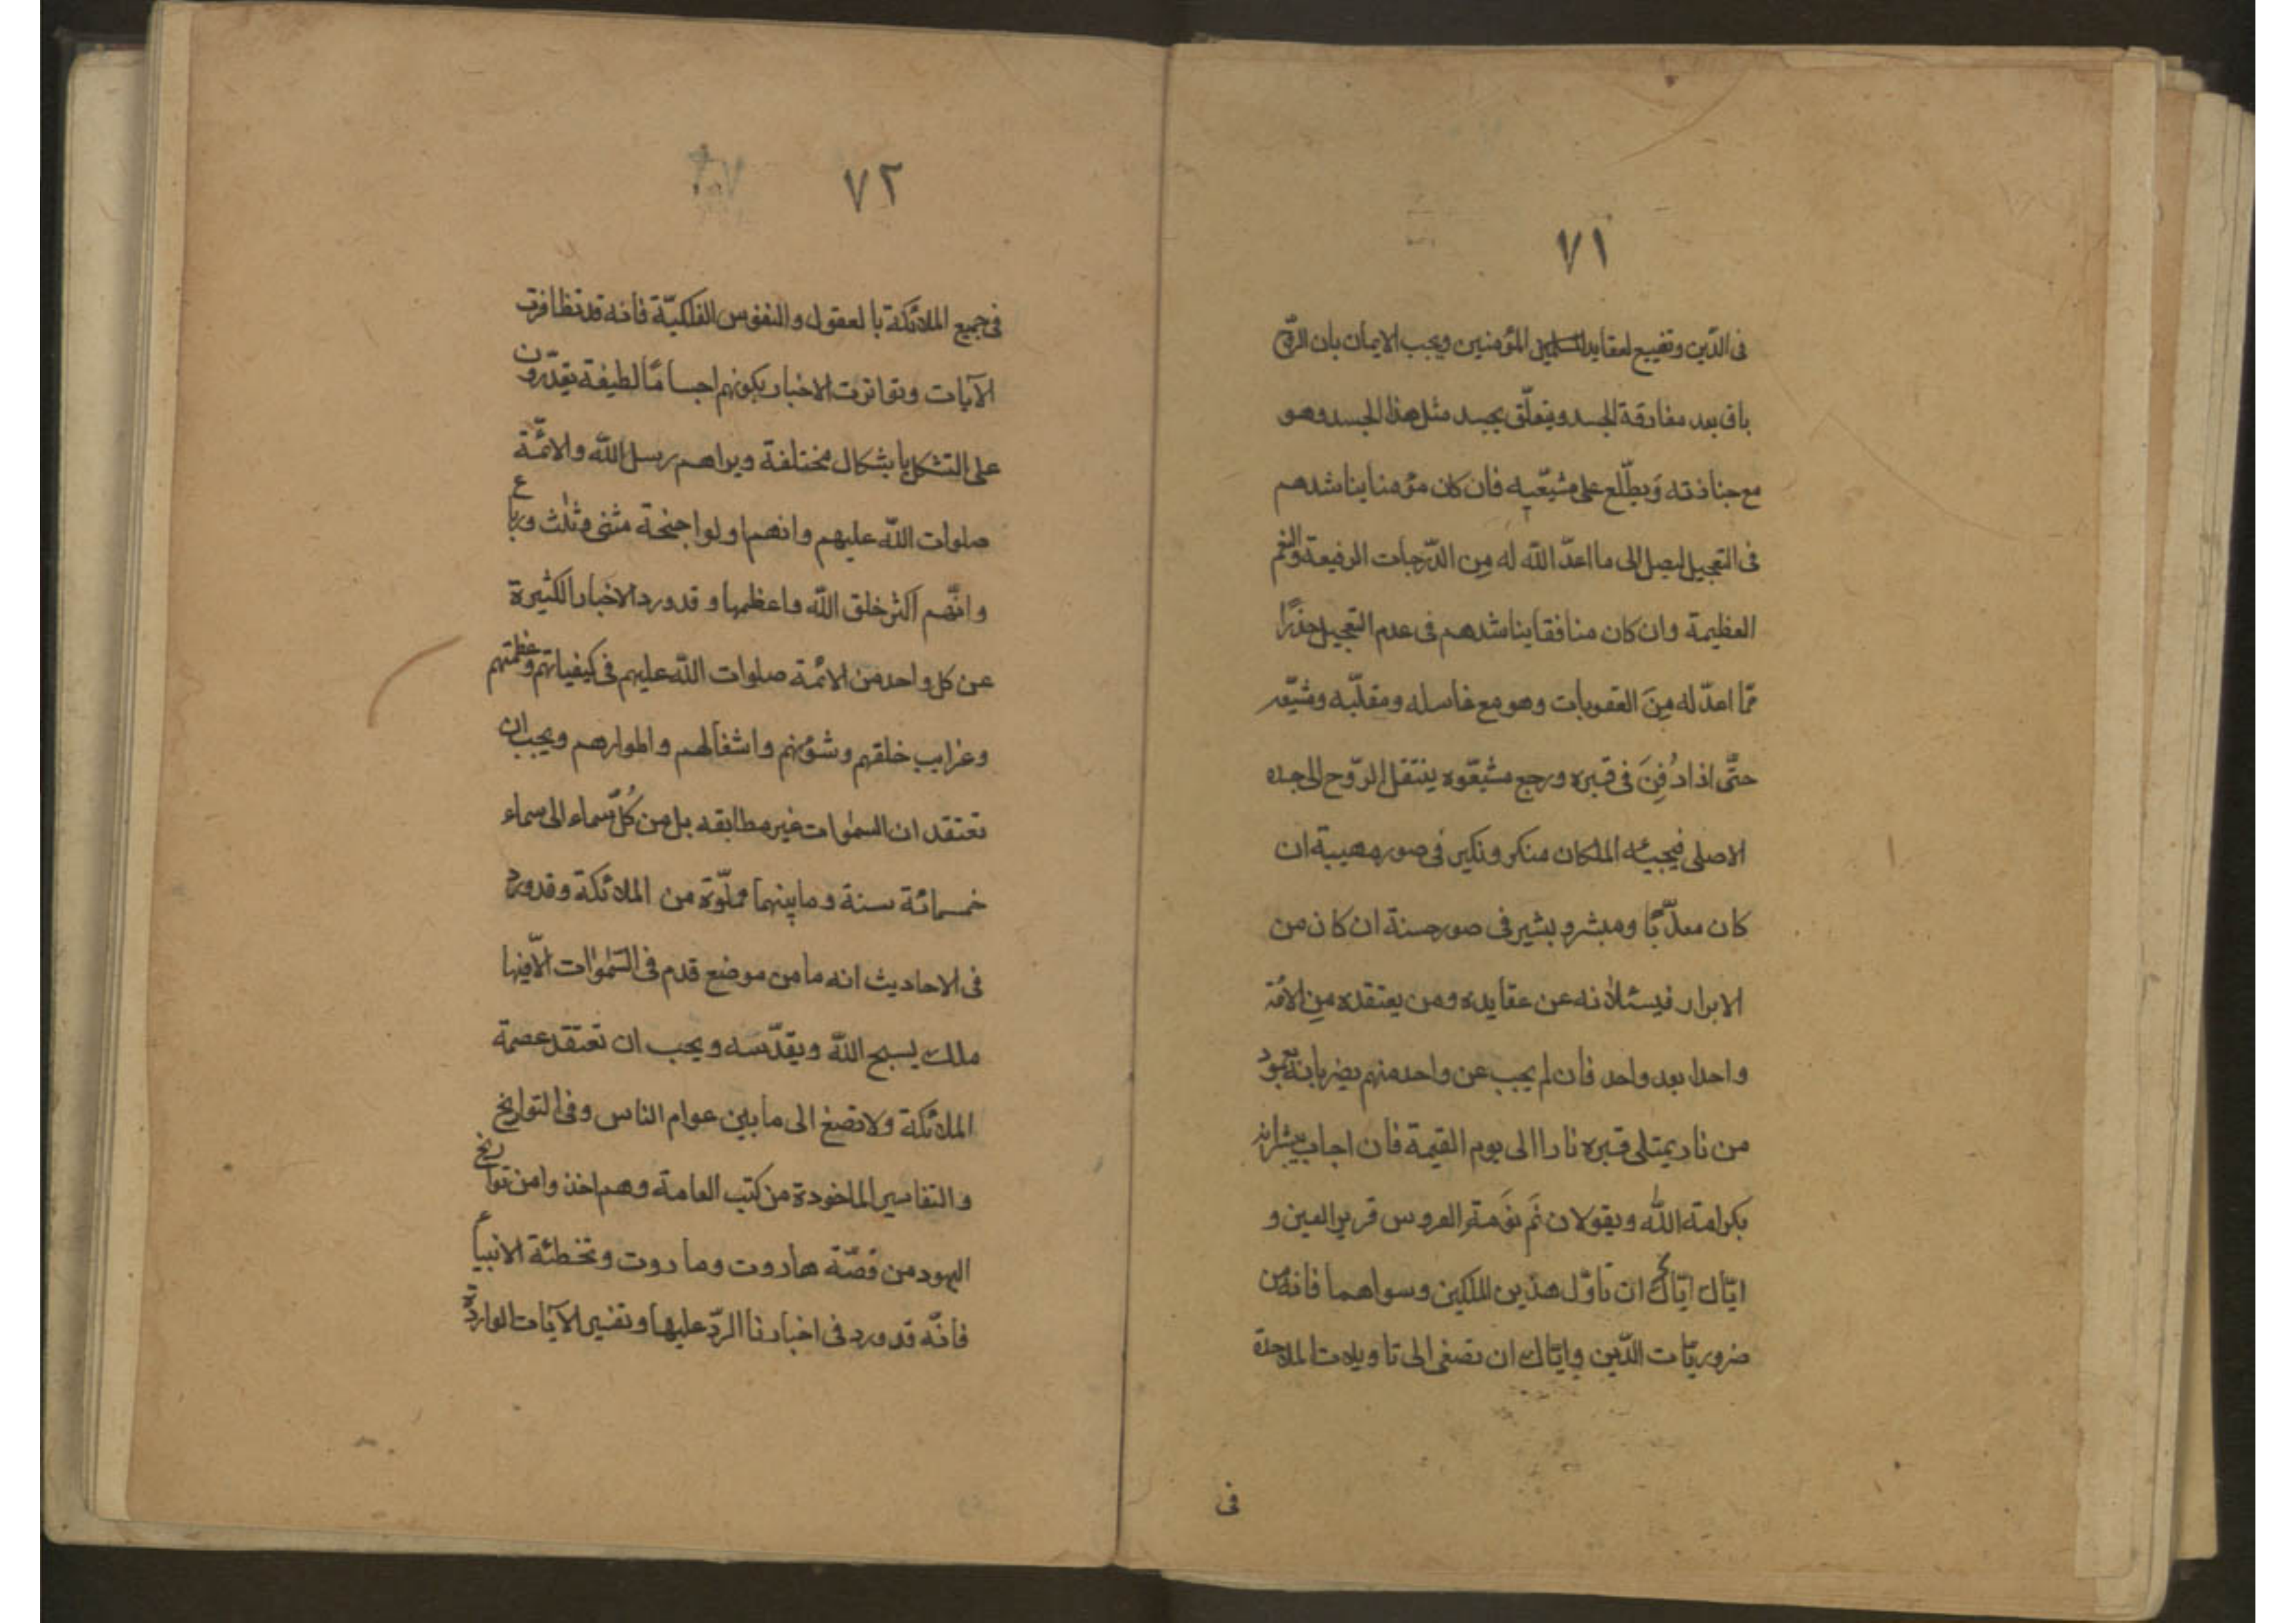 ٧١
فى الدّين وتضييع لعقايد المؤمنين ويجب الايمان بان الرّوح
باق بعد مفارقة الجسد ويتعلّق بجسد مثل هذا الجسد وهو
مع جنازته وَيطّلع على مشيّعيه فان كان مؤمنا يناشدهم
فى التعجيل ليصل الى ما اعدّ اللّه له مِن الدّرجات الرفيعة والنعم
العظيمة وان كان منافقا يناشدهم فى عدم التعجيل حذرًا
ممّا اعدّ له مِنَ العقوبات وهو مع غاسله ومقلّبه ومشيّعه
حتّى اذا دُفِنَ فى قبره ورجع مشيّعوه ينتقل الرّوح الى جسده
الاصلى فيجيئه الملكان منكر ونكير فى صور مهيبة ان
كان معذّبًا ومبشر وبشير فى صور حسنة ان كان من
الابرار فيسئلانه عن عقايده ومن يعتقده مِن الائمّة
واحدا بعد واحد فان لم يجب عن واحد منهم يضربانه بعمود
من نار يمتلى قبره نارا الى يوم القيمة فان اجاب يبشرانه
بكرامة اللّه ويقولان نَم نَومة العروس قرير العين و
ايّاك ايّاك ان تاوّل هذين الملكين وسواهما فانه من
ضروريّات الدّين وايّاك ان تصغى الى تاويلات الملاحدة
فى
٧٢
فى جميع الملائكة بالعقول والنفوس الفلكيّة فانه قد تظافرت
الآيات وتواترت الاخبار بكونهم اجسامًا لطيفة يقدّرون
على التشكل باشكال مختلفة ويراهم رسل اللّه والائمّة
صلوات اللّه عليهم وانهم اولوا جنحة مثنى وثلٰث ورباع
وانّهم اكثر خلق اللّه واعظمها وقد ورد الاخبار الكثيرة
عن كل واحد من الائمة صلوات اللّه عليهم فى كيفياتهم وعظمتهم
وغرايب خلقهم وشؤنهم واشغالهم واطوارهم ويجب ان
تعتقد ان السمٰوات غير مطابقه بل من كُلّ سماء الى سماء
خمسمائة سنة وما بينهما مملّوة من الملائكة وقد ورد
فى الاحاديث انه ما من موضع قدم فى السّمٰوات الّا فيها
ملك يسبح اللّه ويقدّسه ويجب ان تعتقد عصمة
الملائكة ولا تصغ الى ما بين عوام الناس وفى التواريخ
والتفاسير الماخوذة من كتب العامة وهم اخذوا من تواريخ
اليهود من قصّة هاروت وماروت وتخطئة الانبياء
فانّه قد ورد فى اخبارنا الردّ عليها وتفسير الآيات الواردة